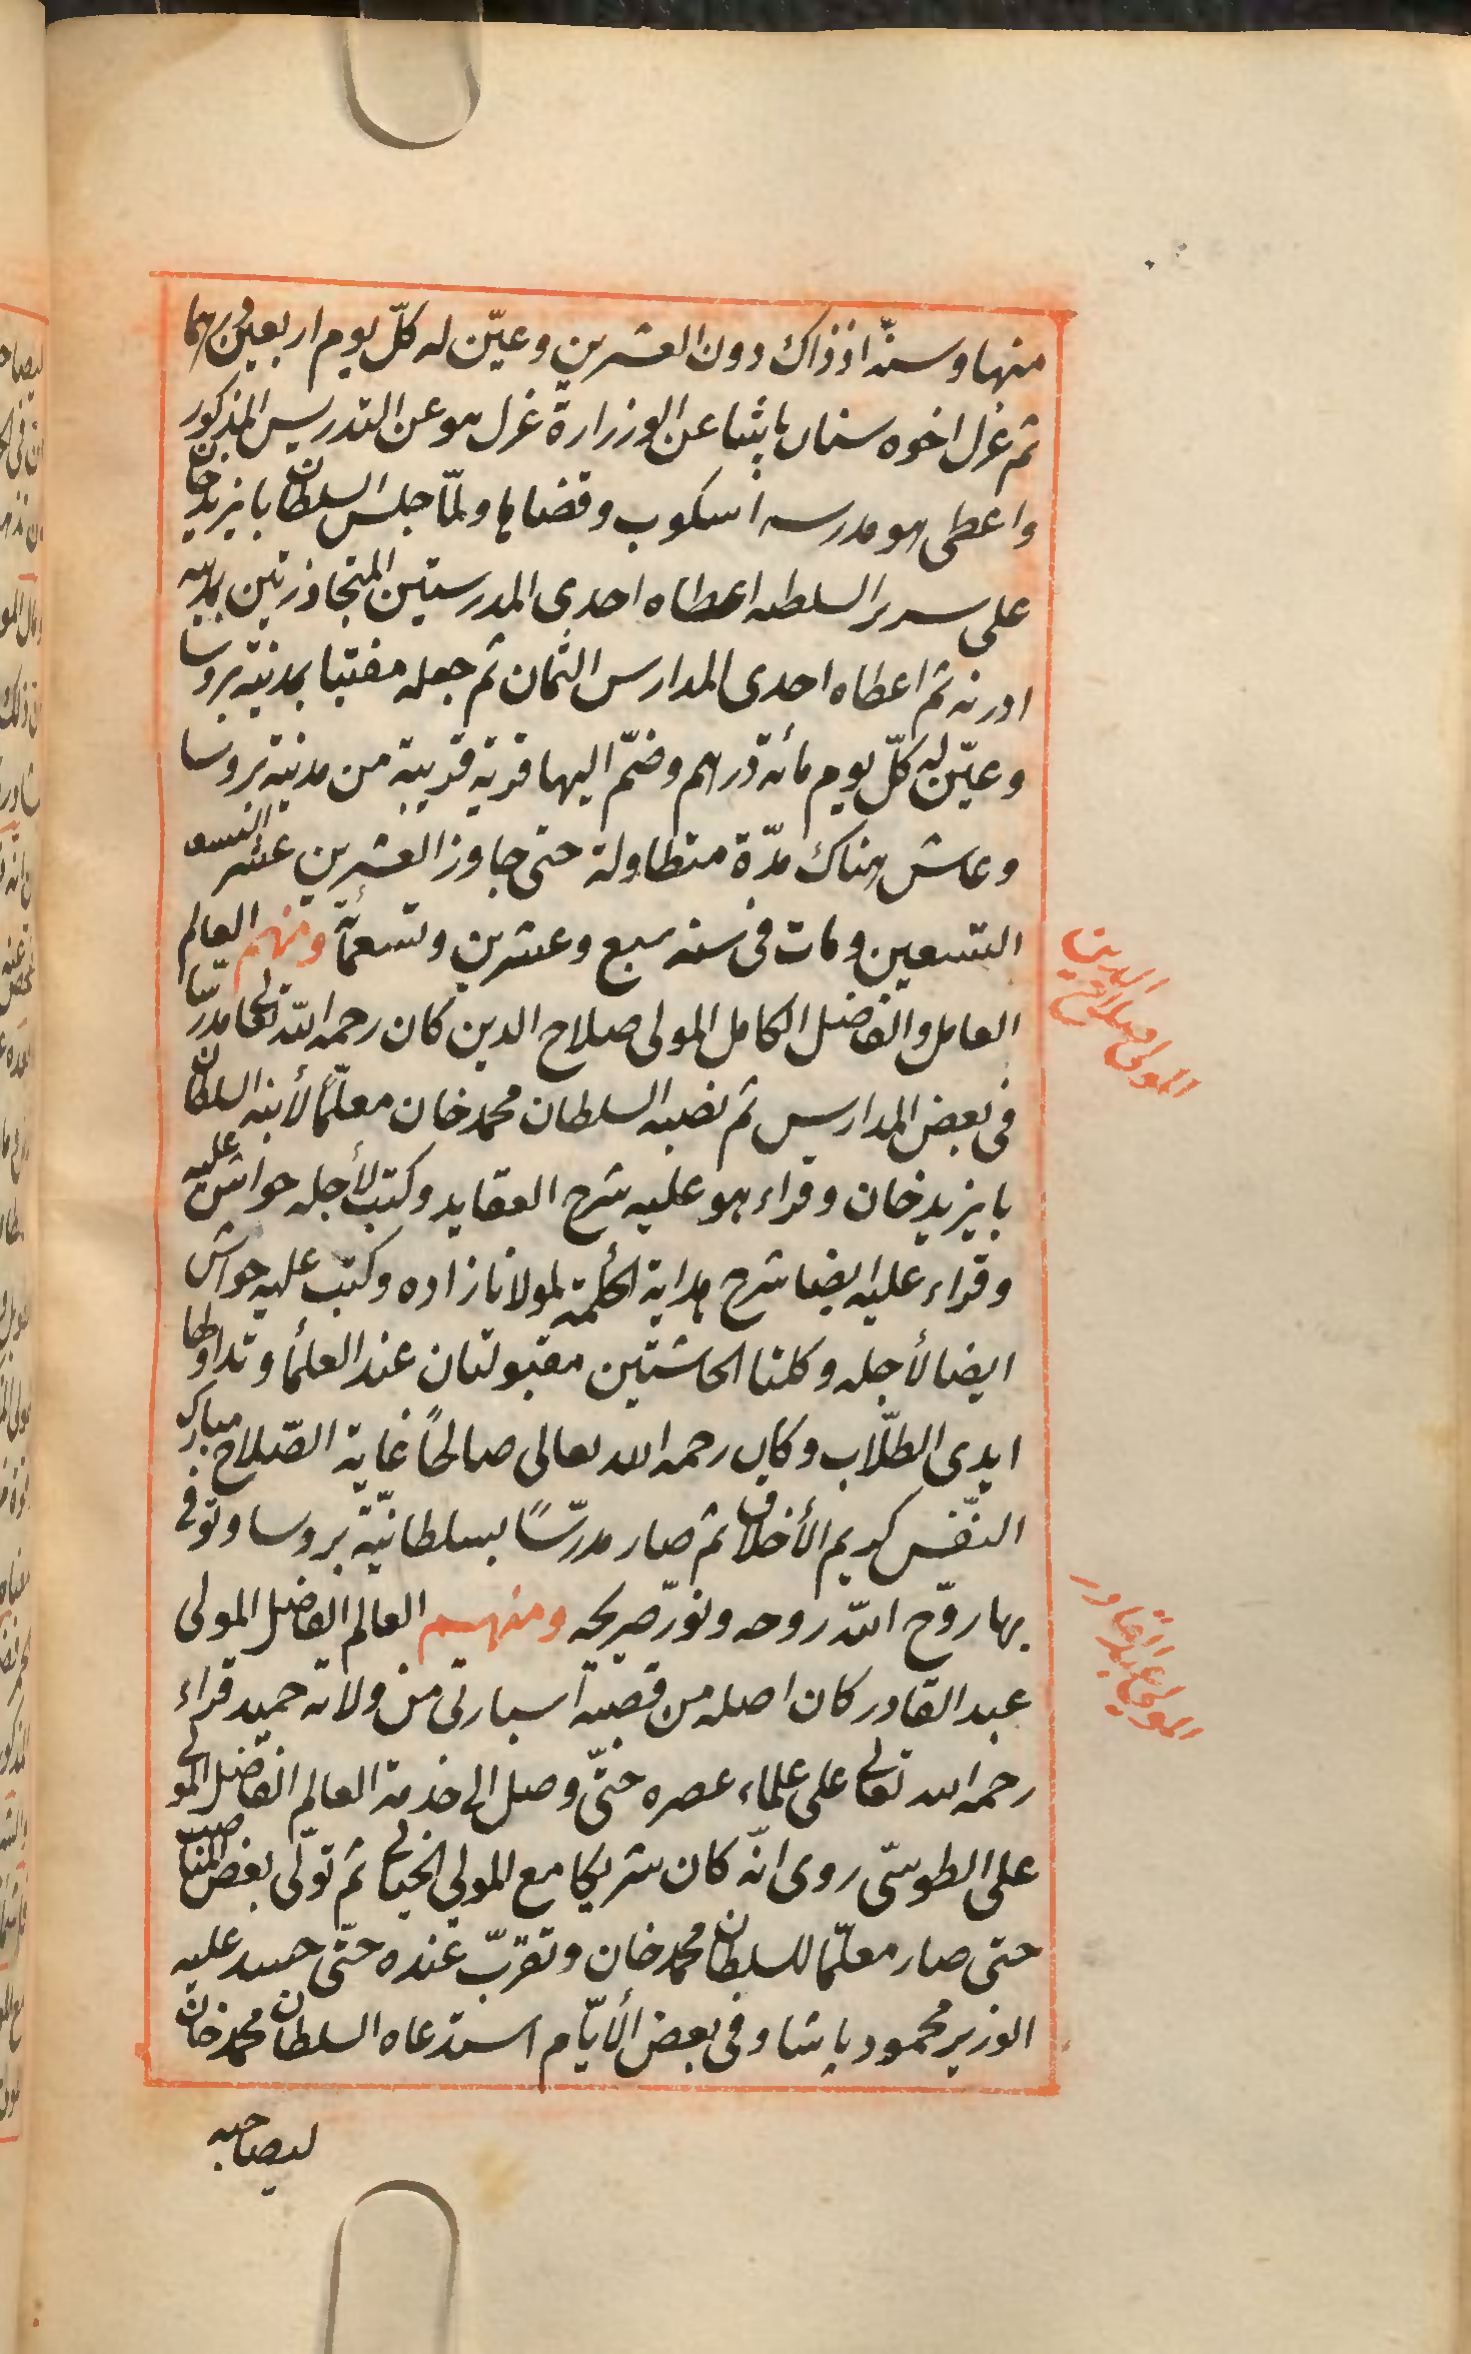 منها وسنّه اذ ذاك دون العشرين وعيّن له كلّ يوم اربعين درهما
ثم عزل اخوه سنان پاشا عن الوزرارة عزل هو عن التدريس المذكور
واعطى هو مدرسه اسكوب وقضاها ولمّا جلس السلطان بايزيد خان
على سرير السلطنه اعطاه احدى المدرستين المتجاذرتين بمدينه
ادرنه ثم اعطاه احدى المدارس الثمان ثم جعله مفتيا بمدينة بروسا
وعيّن له كلّ يوم مائة درهم وضمّ اليها قرية قريبة من مدينة بروسا
وعاش هناك مدّة متطاولة حتى جاوز العشرين عشر التسع
التسعين ومات فى سنه سبع وعشرين وتسعمأة ومنهم العالم
العامل والفاضل الكامل المولى صلاح الدين كان رحمه الله تعالى مدرّسا
فى بعض المدارس ثم نصبه السلطان محمد خان معلّما لأبنه السلطان
بايزيد خان وقراء هو عليه شرح العقايد وكتب لأجله حواش عليه
وقراء عليه ايضا شرح هداية الحكمة لمولانا زاده وكتب عليه حواش
ايضا لأجله وكلتا الحاشتين مقبولتان عند العلمأ وتداولها
ايدى الطلّاب وكان رحمه الله تعالى صالحًا غاية الصّلاح مبارك
النّفس كريم الأخلاق ثم صار مدرّسًا بسلطانيّة بروسا وتوفى
بها روّح الله روحه ونوّر ضريحه ومنهم العالم الفاضل المولى
عبد القادر كان اصله من قصبة اسبارتى من ولاته حميد قراء
رحمه الله تعالى على علماء عصره حتّى وصل الى خدمة العالم الفاضل المولى
على الطوسّى روى انّه كان شريكا مع المولى الخيالى ثم تولّى بعض المناصب
حتى صار معلّما للسلطان محمد خان وتقرّب عنده حتّى حسد عليه
الوزير محمود پاشا وفى بعض الأيّام استدعاه السلطان محمد خان
ليصاحبه
المولى صلاح الدين
المولى عبد القادر